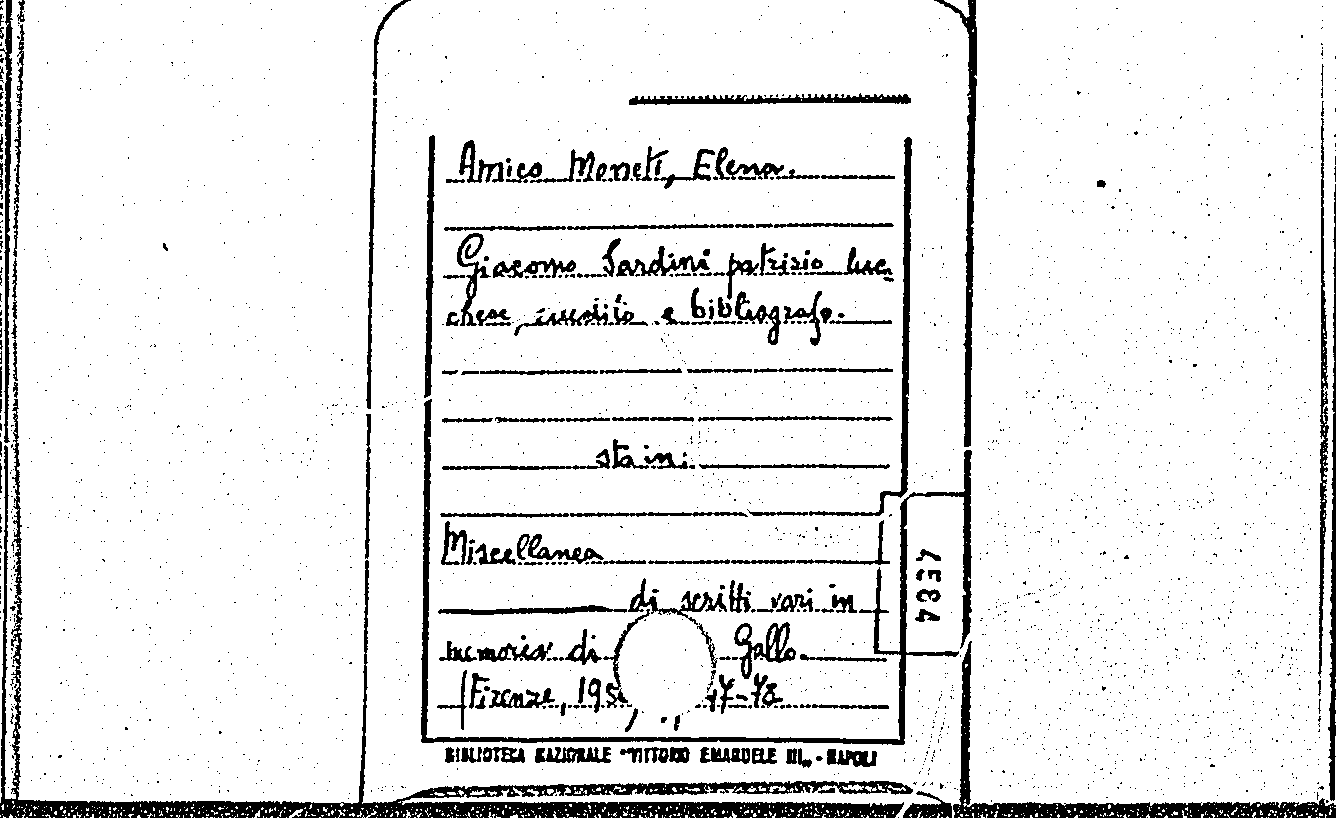 Amico Moneti, Elena.
Giacomo Sardini patrizio luc-
chese, erudito e bibliografo.
sta in:
Miscellanea
di scritti vari in
memoria di Gallo.
Firenze, 195 47-78
4584
BIBLIOTECA NAZIONALE "VITTORIO EMANUELE III„ - NAPOLI